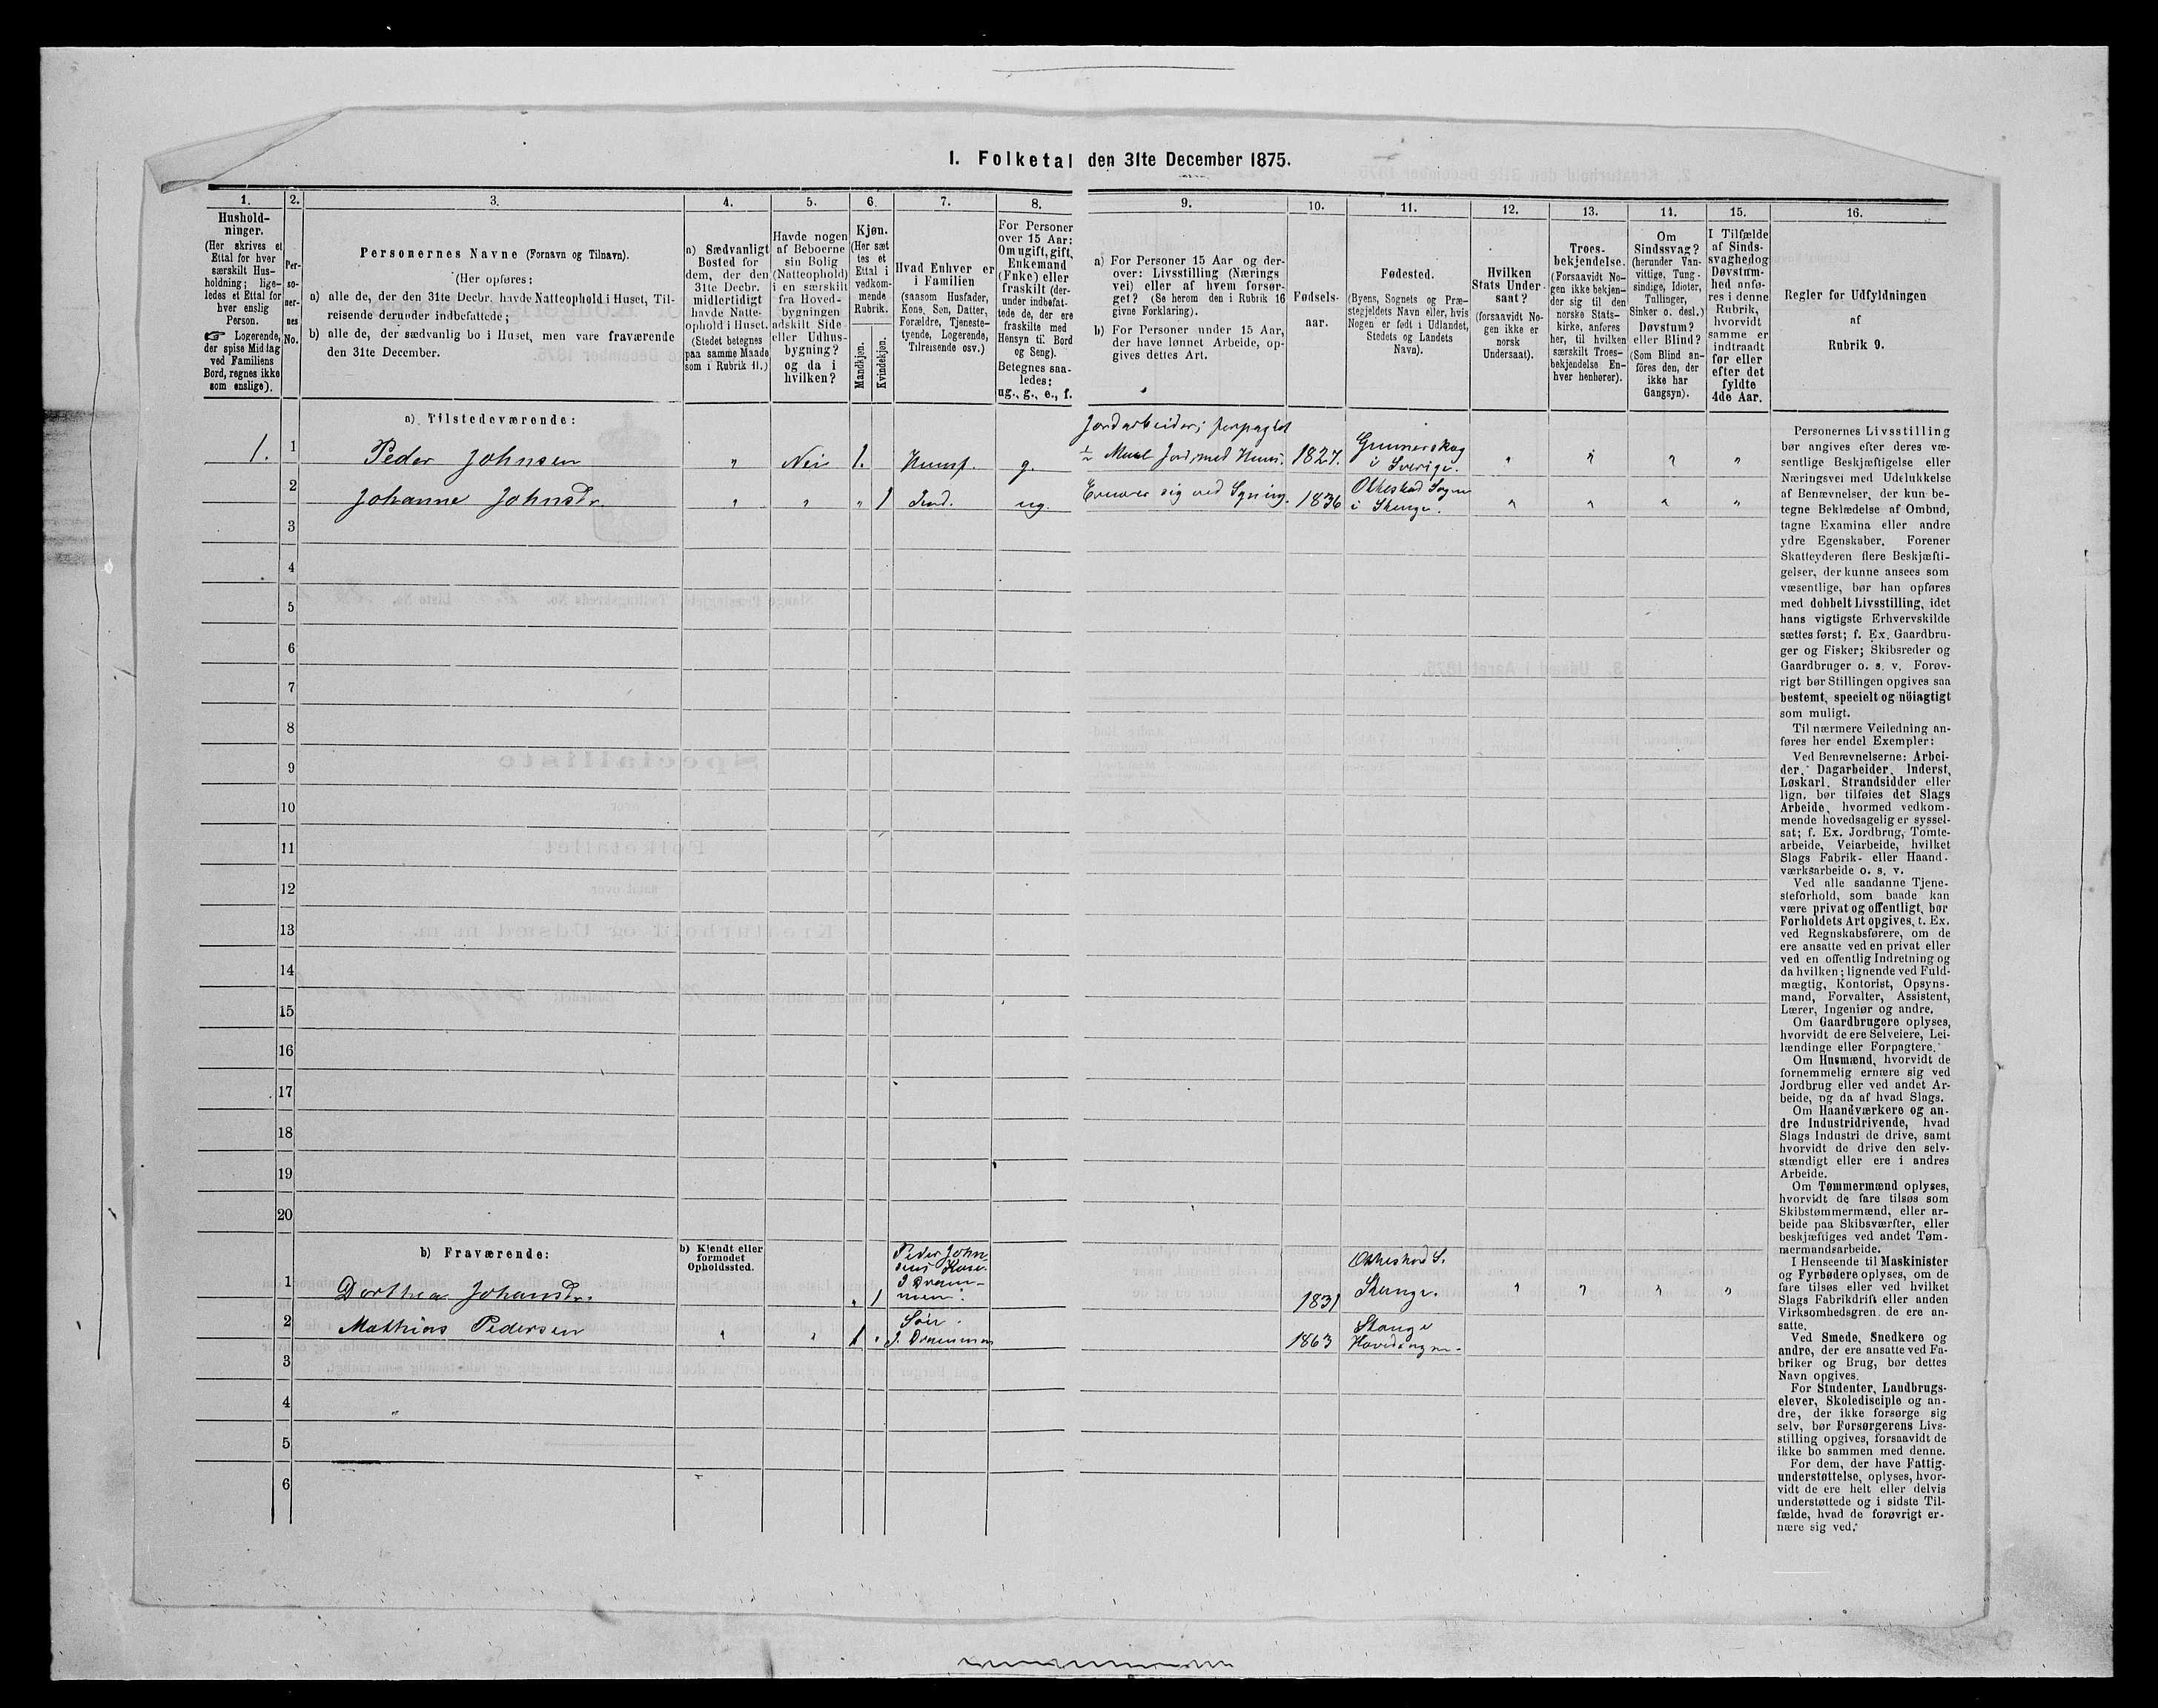 I. Folketal den 31te December 1875.
1.
2.
3.
4.
5.
6.
7.
8.
9.
10.
11.
12.
13.
14.
15.
16.
Hushold-
ninger.
(Her skrives et
Ettal for hver
særskilt Hus-
holdning; lige-
ledes et Ettal for
hver enslig
Person.
Logerende,
der spise Middag
ved Familiens
Bord, regnes ikke
som enslige).
Per-
so-
ner-
nes
No.
Personernes Navne (Fornavn og Tilnavn).
(Her opføres:
a) alle de, der den 31te Decbr. havde Natteophold i Huset, Til-
reisende derunder indbefattede;
b) alle de, der sædvanlig bo i Huset, men vare fraværende
den 31te December.
a) Sædvanligt
Bosted for
dem, der den
31te Decbr.
midlertidigt
havde Natte-
ophold i Huset.
(Stedet betegnes
paa samme Maade
som i Rubrik 11.)
Havde nogen
af Beboerne
sin Bolig
(Natteophold)
i en særskilt
fra Hoved-
bygningen
adskilt Side-
eller Udhus-
bygning?
og da i
hvilken?
Kjøn.
(Her sæt-
tes et
Ettal i
vedkom-
mende
Rubrik.
Mandkjøn.
Kvindekjøn.
Hvad Enhver er
i Familien
(saasom Husfader,
Kone, Søn, Datter,
Forældre, Tjeneste-
tyende, Logerende,
Tilreisende osv.)
For Personer
over 15 Aar:
Om ugift, gift,
Enkemand
(Enke) eller
fraskilt (der-
under indbefat-
tede de, der ere
fraskilte med
Hensyn til Bord
og Seng).
Betegnes saa-
ledes:
ug., g., e., f.
a) For Personer 15 Aar og der-
over: Livsstilling (Nærings
vei) eller af hvem forsør-
get? (Se herom den i Rubrik 16
givne Forklaring).
b) For Personer under 15 Aar,
der have lønnet Arbeide, op-
gives dettes Art.
Fødsels-
aar.
Fødested.
(Byens, Sognets og Præ-
stegjeldets Navn eller, hvis
Nogen er født i Udlandet,
Stedets og Landets
Navn).
Hvilken
Stats Under-
saat?
(forsaavidt No-
gen ikke er
norsk
Undersaat).
Troes-
bekjendelse.
(Forsaavidt No-
gen ikke bekjen-
der sig til den
norske Stats-
kirke, anføres
her, til hvilken
særskilt Troes-
bekjendelse En-
hver henhører).
Om
Sindssvag?
(herunder Van-
vittige, Tung-
sindige, Idioter,
Tullinger,
Sinker o. desl.)
Døvstum?
eller Blind?
(Som Blind an-
föres den, der
ikke har
Gangsyn).
I Tilfælde
af Sinds-
svaghed og
Døvstum-
hed anfø-
res i denne
Rubrik,
hvorvidt
samme er
indtraadt
før eller
efter det
fyldte
4de Aar.
Regler for Udfyldningen
af
Rubrik 9.
a) Tilstedeværende:
1. 1 Peder Johnsen " Nei 1. Huusf. g. Jordarbeider; forpagtet
½ Maal Jord med Huus. 1827. Gunnerskog
i Sverige. " " " "
2 Johanne Johnsdr. " " " 1 Ind. ug. Ernærer sig ved Syning. 1836 Ottestad Sogn
i Stange. " " " "
3
4
5
6
7
8
9
10
11
12
13
14
15
16
17
18
19
20
b) Fraværende:
b) Kjendt eller
formodet
Opholdssted.
1 Dorthea Johansdr. " 1 Peder John
sens Kone.
I Dram-
men. 1831 Ottestad S.
Stange. " " " "
2 Mathias Pedersen " " 1 " Søn.
I. Drammen 1863 Stange
Hovedsogn.
3
4
5
6
Personernes Livsstilling
bør angives efter deres væ-
sentlige Beskjæftigelse eller
Næringsvei med Udelukkelse
af Benævnelser, der kun be-
tegne Beklædelse af Ombud,
tagne Examina eller andre
ydre Egenskaber. Forener
Skatteyderen flere Beskjæfti-
gelser, der kunne ansees som
væsentlige, bør han opføres
med dobbelt Livsstilling, idet
hans vigtigste Erhvervskilde
sættes først; f. Ex. Gaardbru-
ger og Fisker; Skibsreder og
Gaardbruger o. s. v. Forøv-
rigt bør Stillingen opgives saa
bestemt, specielt og nöiagtigt
som muligt.
Til nærmere Veiledning an-
føres her endel Exempler:
Ved Benævnelserne: Arbei-
der, Dagarbeider, Inderst,
Løskarl, Strandsidder eller
lign. bør tilføies det Slags
Arbeide, hvormed vedkom-
mende hovedsagelig er syssel-
sat; f. Ex. Jordbrug, Tomte-
arbeide, Veiarbeide, hvilket
Slags Fabrik- eller Haand-
værksarbeide o. s. v.
Ved alle saadanne Tjene-
steforhold, som baade kan
være privat og offentligt, bør
Forholdets Art opgives, t. Ex.
ved Regnskabsførere, om de
ere ansatte ved en privat eller
ved en offentlig Indretning og
da hvilken; lignende ved Fuld-
mægtig, Kontorist, Opsyns-
mand, Forvalter, Assistent,
Lærer, Ingeniør og andre.
Om Gaardbrugere oplyses,
hvorvidt de ere Selveiere, Lei-
lændinge eller Forpagtere.
Om Husmænd, hvorvidt de
fornemmelig ernære sig ved
Jordbrug eller ved andet Ar-
beide, og da af hvad Slags.
Om Haandværkere og an-
dre Industridrivende, hvad
Slags Industri de drive, samt
hvorvidt de drive den selv-
stændigt eller ere i andres
Arbeide.
Om Tømmermænd oplyses,
hvorvidt de fare tilsøs som
Skibstømmermænd, eller ar-
beide paa Skibsværfter, eller
beskjæftiges ved andet Tøm-
mermandsarbeide.
I Henseende til Maskinister
og Fyrbødere oplyses, om de
fare tilsøs eller ved hvilket
Slags Fabrikdrift eller anden
Virksomhedsgren de ere an-
satte.
Ved Smede, Snedkere og
andre, der ere ansatte ved Fa-
briker og Brug, bør dettes
Navn opgives.
For Studenter, Landbrugs-
elever, Skoledisciple og an-
dre, der ikke forsørge sig
selv, bør Forsørgerens Livs-
stilling opgives, forsaavidt de
ikke bo sammen med denne.
For dem, der have Fattig-
understøttelse, oplyses, hvor-
vidt de ere helt eller delvis
understøttede og i sidste Til-
fælde, hvad de forøvrigt er-
nære sig ved.